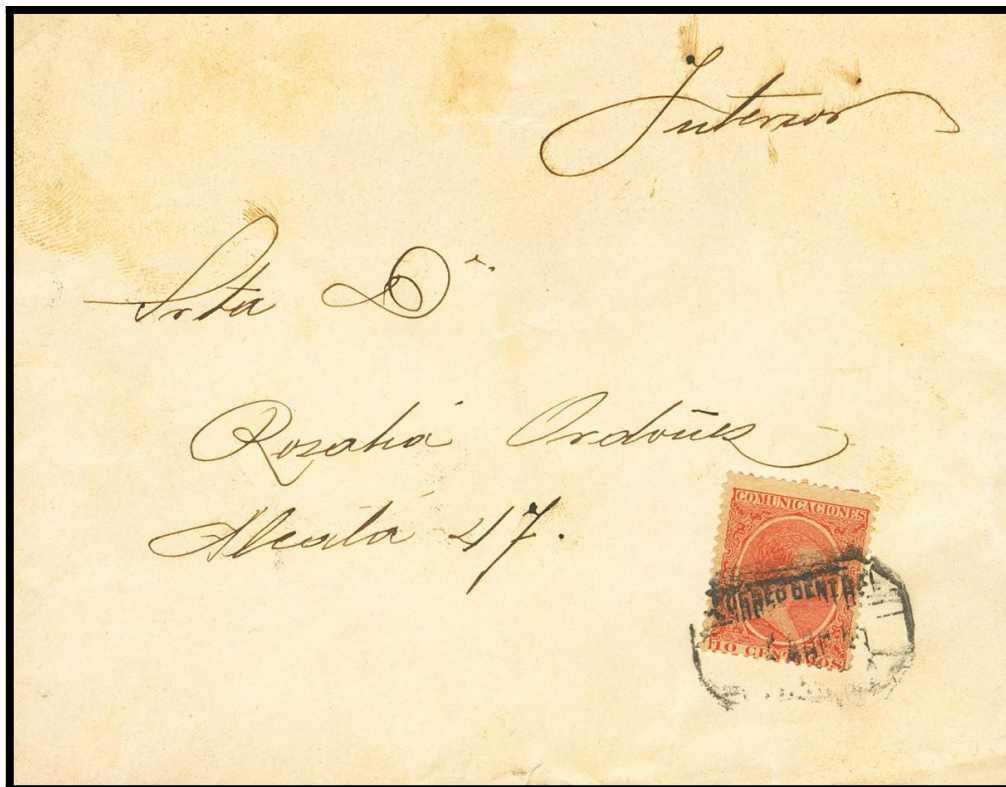 Interior
Srta Dª
Rosalía Ordoñes
Alcalá 47.
COMUNICACIONES
CORREO CENTRAL
10 CENTIMOS